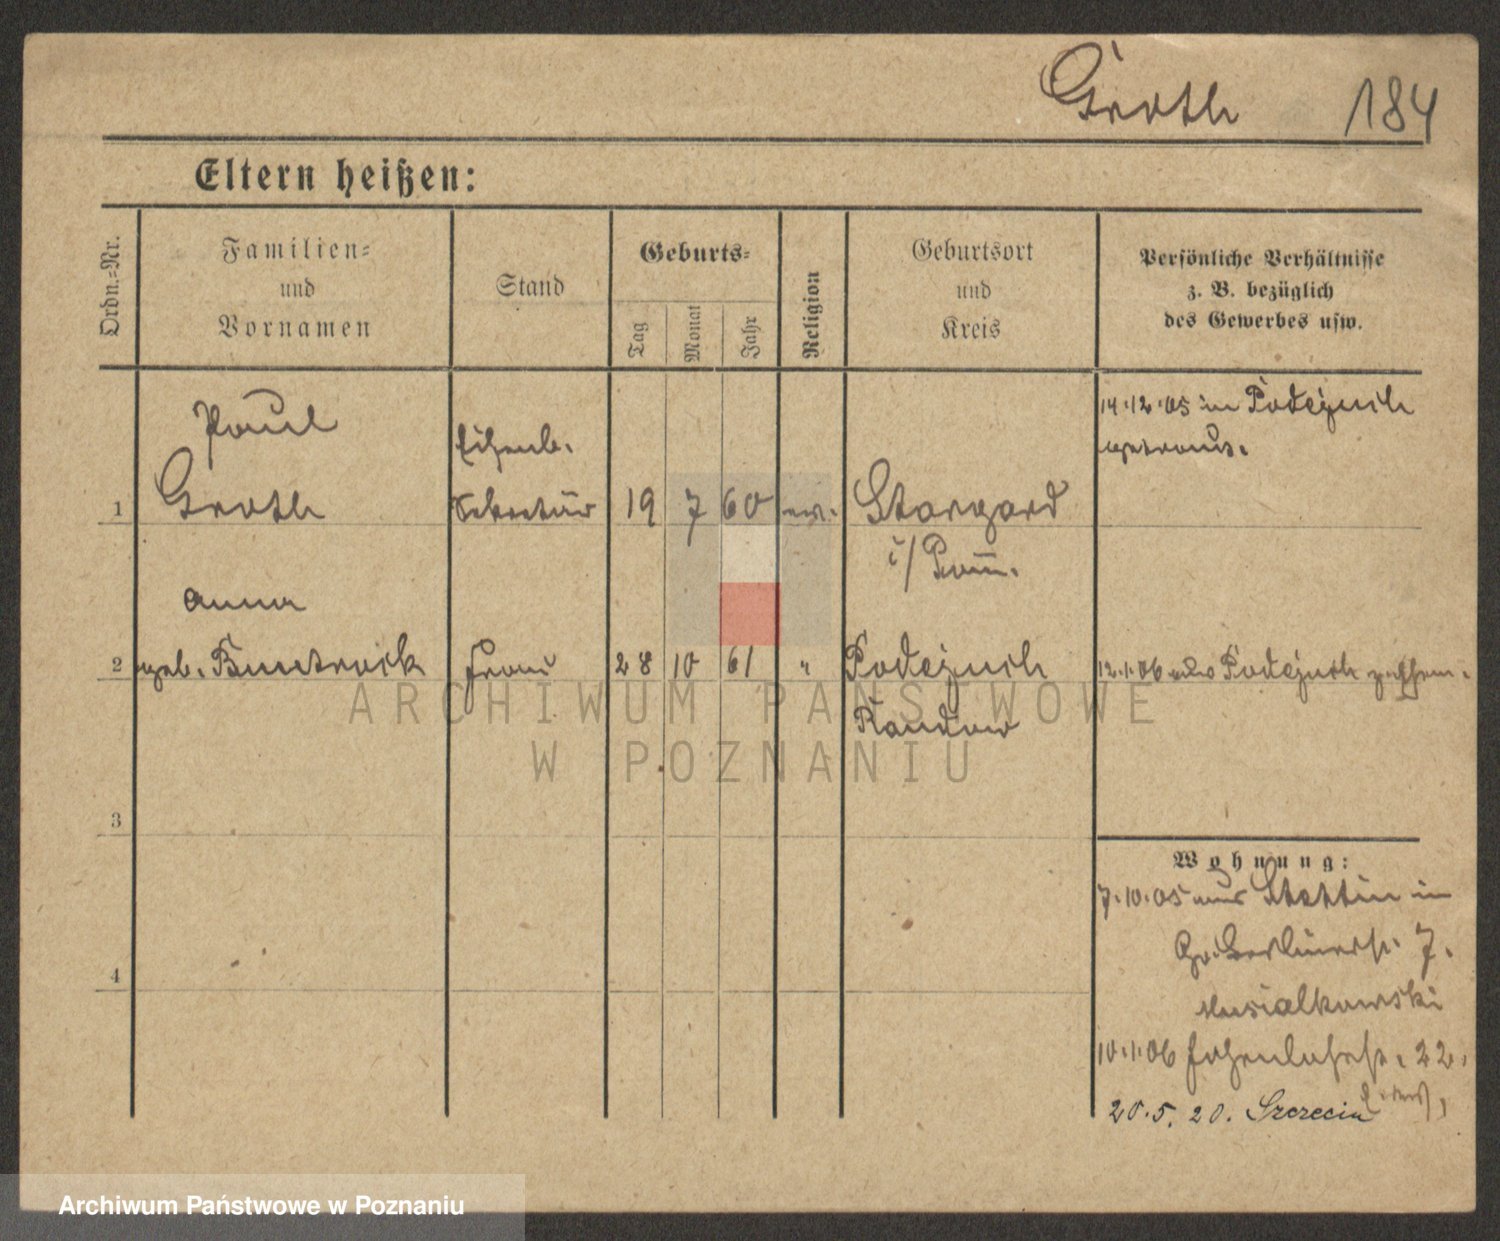 Groth 184
Eltern heißen:
Ordn.-Nr.
Familien-
und
Vornamen
Stand
Geburts-
Tag
Monat
Jahr
Religion
Geburtsort
und
Kreis
Persönliche Verhältnisse
z. B. bezüglich
des Gewerbes usw.
Paul
Eisenb.
14.12.05 in Podejuch
getraut.
1 Groth Sekretär 19 7 60 ev. Stargard
i/Pom.
Anna
2 geb. Buntrock Frau 28 10 61 " Podejuch 12.1.06 aus Podejuch
Randow
ARCHIWUM PAŃSTWOWE
W POZNANIU
3
4
Wohnung:
7.10.05 aus Stettin in
Gr. Berlinerstr. 7.
Musialkowski
10.1.06 Hohenlohestr. 22.
20.5.20. Szczecin
Archiwum Państwowe w Poznaniu